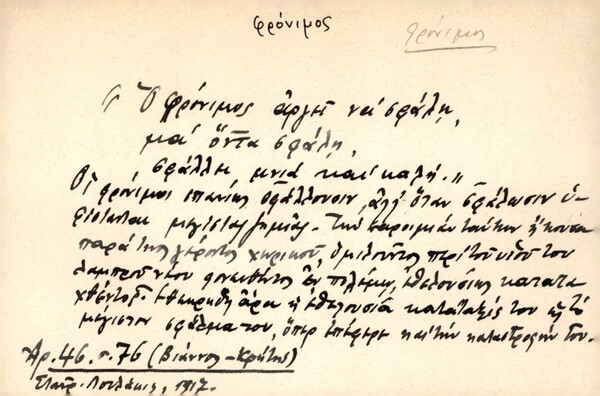 φρόνιμος
φρόνιμος
"Ὁ φρόνιμος ἀργεῖ νὰ σφάλῃ,
μὰ ὅντα σφάλῃ,
σφάλλει μνιὰ καὶ καλή."
Οἱ φρόνιμοι σπανίως σφάλλουσιν, ἀλλ' ὅταν σφάλωσιν ὑ-
φίστανται μεγίστας ζημίας. Τὴν παροιμίαν ταύτην ἤκουσα
παρά τινος γέροντος χωρικοῦ, ὁμιλοῦντος περὶ τοῦ υἱοῦ του
λαμπροῦ νέου φονευθέντος ἐν πολέμῳ, ἐθελουσίως κατατα-
χθέντος. Ἐθεωρήθη ἄρα ἡ ἐθελουσία κατάταξίς του ὡς τὸ
μέγιστον σφάλμα του, ὅπερ ἐπέφερε καὶ τὴν καταστροφήν του.
Ἀρ. 46. σ. 76 (Βιάννος-Κρήτης)
1917.